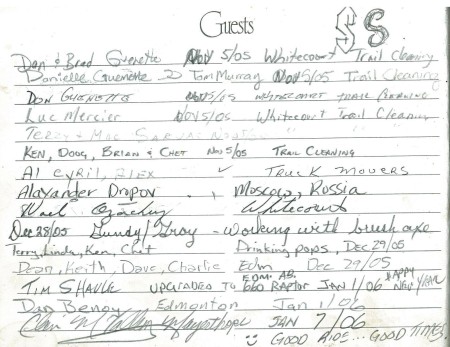 Guests
S S
Dan & Brad Guenette Nov 5/05 Whitecourt Trail Cleaning
Danielle Guenette Tom Murray Nov 5/05 Trail Cleaning
Don Guenette Nov 5/05 Whitecourt Trail Cleaning
Luc Mercier Nov 5/05 Whitecourt Trail Cleaning
Terry & Mac
Ken, Doug, Brian & Chet Nov 5/05 Trail Cleaning
Al Cyril, Alex Truck Movers
Alaxander Moscow, Russia
Whitecourt
Dec 28/05 - working with brush axe
Terry, Linda, Ken, Chet Drinking pops, Dec 29/05
Dean, Keith, Dave, Charlie Edm Dec 29/05
Tim upgraded to 660 Raptor Jan 1/06 Happy New Year
Edm. AB.
Dan Benoy Edmonton Jan 1/06
Mayerthorpe Jan 7/06
Good Ride... Good Times